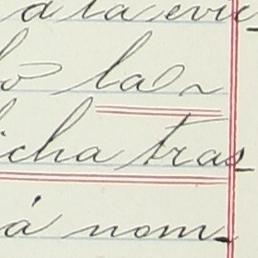 a la evi-
la
icha tras-
á nom-